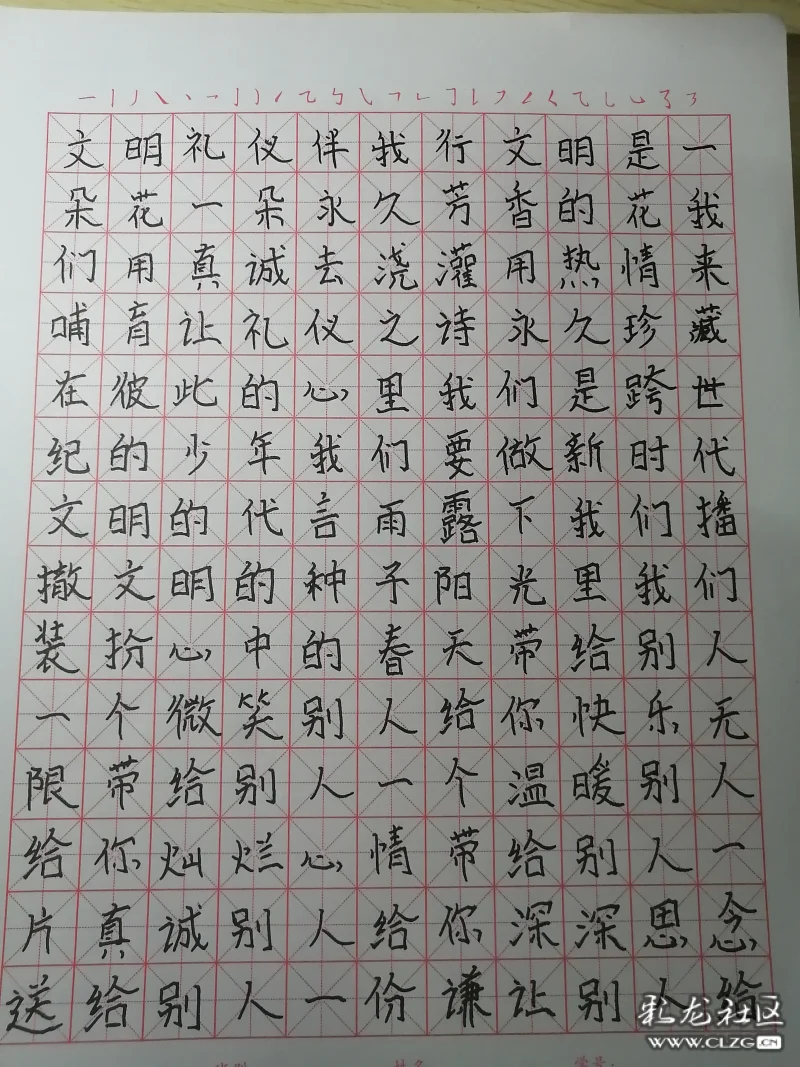 文明礼仪伴我行文明是一
朵花一朵永久芳香的花我
们用真诚去浇灌用热情来
哺育让礼仪之诗永久珍藏
在彼此的心里我们是跨世
纪的少年我们要做新时代
文明的代言雨露下我们播
撒文明的种子阳光里我们
装扮心中的春天带给别人
一个微笑别人给你快乐无
限带给别人一个温暖别人
给你灿烂心情带给别人一
片真诚别人给你深深思念
送给别人一份谦让别人给
彩龙社区
WWW.CLZG.CN